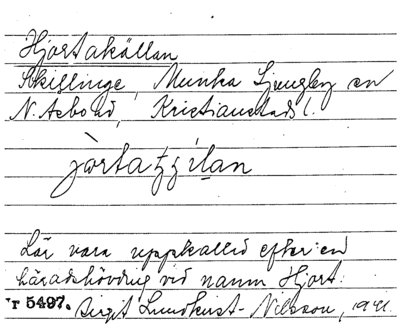 Hjortakällan
Skillinge, Munka Ljungby sn
N. Åsbo hd, Kristianstads l.
Lär vara uppkallad efter en
häradshövding vid namn Hjort.
r 5497. Birgit Lundkvist-Nilsson, 1941.